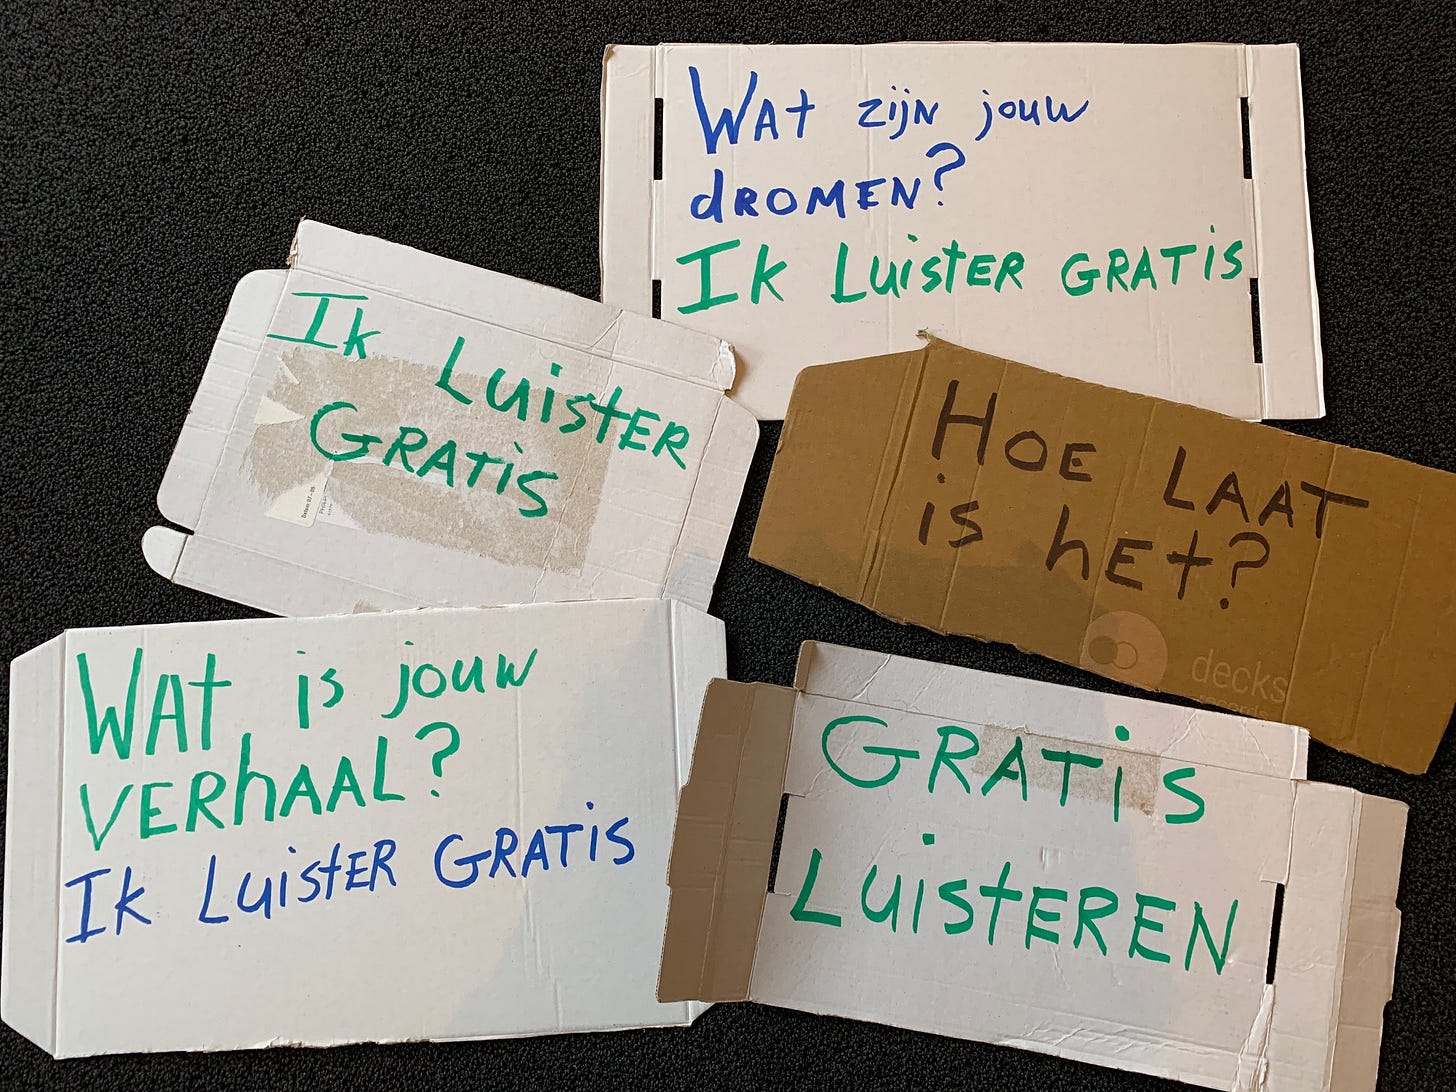 Wat zijn jouw
dromen?
Ik Luister GRATis
Ik Luister
GRATis
HOE LAAT
is het?
decks
records
Wat is jouw
VERhAAL?
Ik Luister GRATis
GRATis
LuistEREN